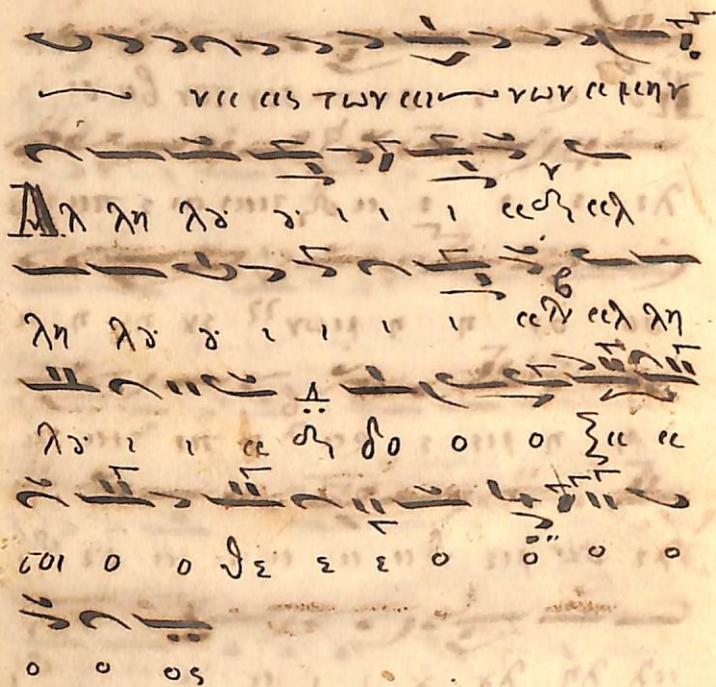 να ας των αι νων α μην
Αλ λη λȣ ȣ ι ι ι α αλ
λη λȣ ȣ ι ι ι ι α αλ λη
λȣ ι ι α δο ο ο ξα α
σοι ο ο θε ε ε ο ο ο ο
ο ο ος